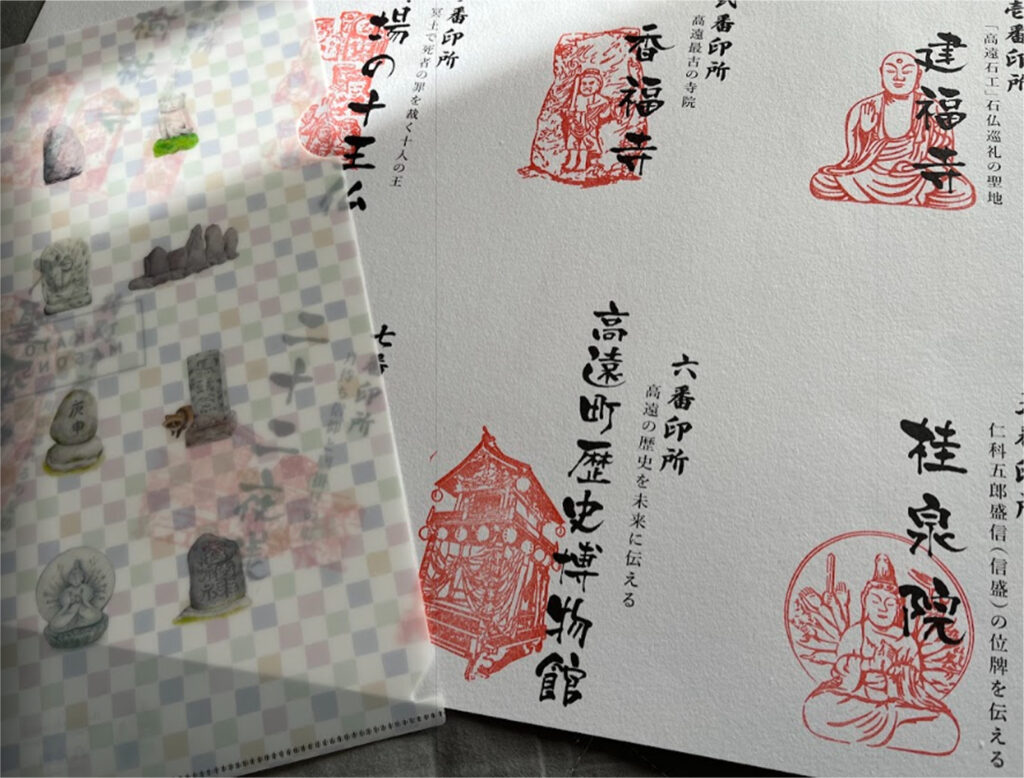 壱番印所
「高遠石工」石仏巡礼の聖地
建福寺
弐番印所
高遠最古の寺院
香福寺
番印所
冥土で死者の罪を裁く十人の王
場の十王仏
五番印所
仁科五郎盛信(信盛)の位牌を伝える
桂泉院
六番印所
高遠の歴史を未来に伝える
高遠町歴史博物館
七番
二十二夜
印所
庚申